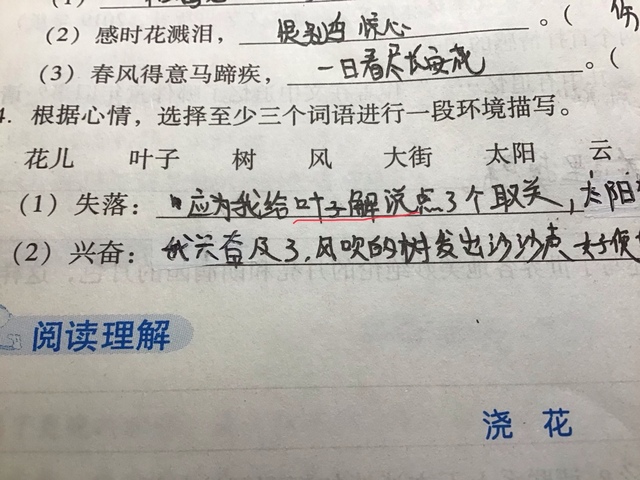 (2) 感时花溅泪，恨别鸟惊心。(
(3) 春风得意马蹄疾，一日看尽长安花。(
4. 根据心情，选择至少三个词语进行一段环境描写。
花儿 叶子 树 风 大街 太阳 云
(1) 失落：因应为我给叶子解说点了个取关，太阳
(2) 兴奋：我兴奋风了，风吹的树发出沙沙声
阅读理解
浇花